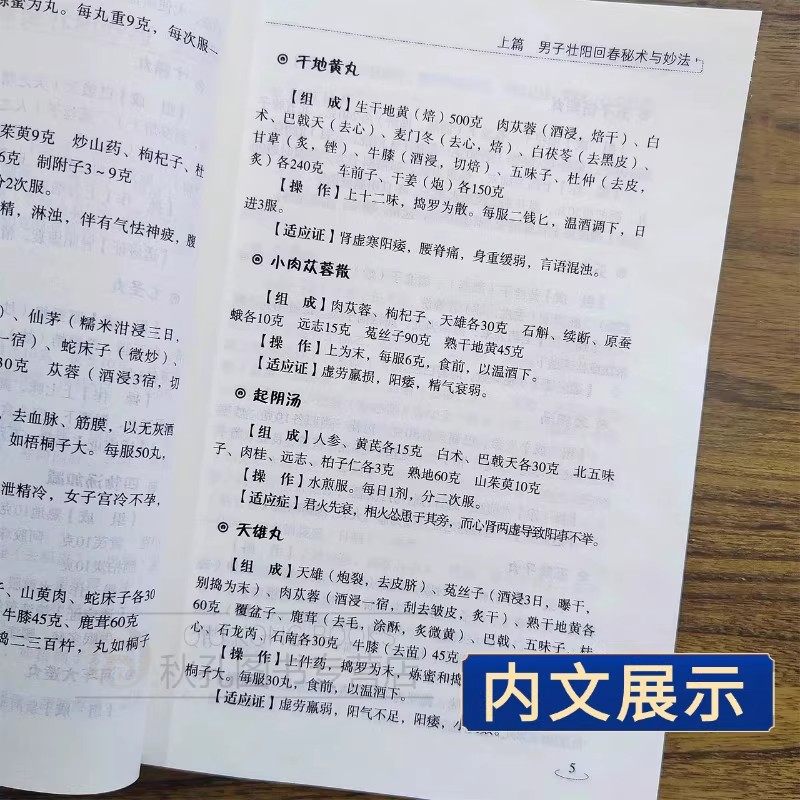 炼蜜为丸。每丸重9克，每次服一
茱萸9克 炒山药、枸杞子、杜
6克 制附子3～9克
分2次服。
精，淋浊，伴有气怯神疲，腹
）、仙茅（糯米泔浸三日，
一宿）、蛇床子（微炒）、
30克 苁蓉（酒浸3宿，切
，去血脉、筋膜，以无灰酒
如梧桐子大。每服50丸，
泄精冷，女子宫冷不孕，
子、山萸肉、蛇床子各30
牛膝45克、鹿茸60克
捣二三百杵，丸如桐子
上篇 男子壮阳回春秘术与妙法
◎ 干地黄丸
【组 成】生干地黄（焙）500克 肉苁蓉（酒浸，焙干）、白
术、巴戟天（去心）、麦门冬（去心，焙）、白茯苓（去黑皮）、
甘草（炙，锉）、牛膝（酒浸，切焙）、五味子、杜仲（去皮，
炙）各240克 车前子、干姜（炮）各150克
【操 作】上十二味，捣罗为散。每服二钱匕，温酒调下，日
进3服。
【适应证】肾虚寒阳痿，腰脊痛，身重缓弱，言语混浊。
◎ 小肉苁蓉散
【组 成】肉苁蓉、枸杞子、天雄各30克 石斛、续断、原蚕
蛾各10克 远志15克 菟丝子90克 熟干地黄45克
【操 作】上为末，每服6克，食前，以温酒下。
【适应证】虚劳羸损，阳痿，精气衰弱。
◎ 起阴汤
【组 成】人参、黄芪各15克 白术、巴戟天各30克 北五味
子、肉桂、远志、柏子仁各3克 熟地60克 山茱萸10克
【操 作】水煎服。每日1剂，分二次服。
【适应症】君火先衰，相火怂恿于其旁，而心肾两虚导致阳事不举。
◎ 天雄丸
【组 成】天雄（炮裂，去皮脐）、菟丝子（酒浸3日，曝干，
别捣为末）、肉苁蓉（酒浸一宿，刮去皱皮，炙干）、熟干地黄各
60克 覆盆子、鹿茸（去毛，涂酥，炙微黄）、巴戟、五味子、桂
心、石龙芮、石南各30克 牛膝（去苗）45克
【操 作】上件药，捣罗为末，炼蜜和捣
桐子大。每服30丸，食前，以温酒下。
【适应证】虚劳羸弱，阳气不足，阳痿，小
5
内文展示